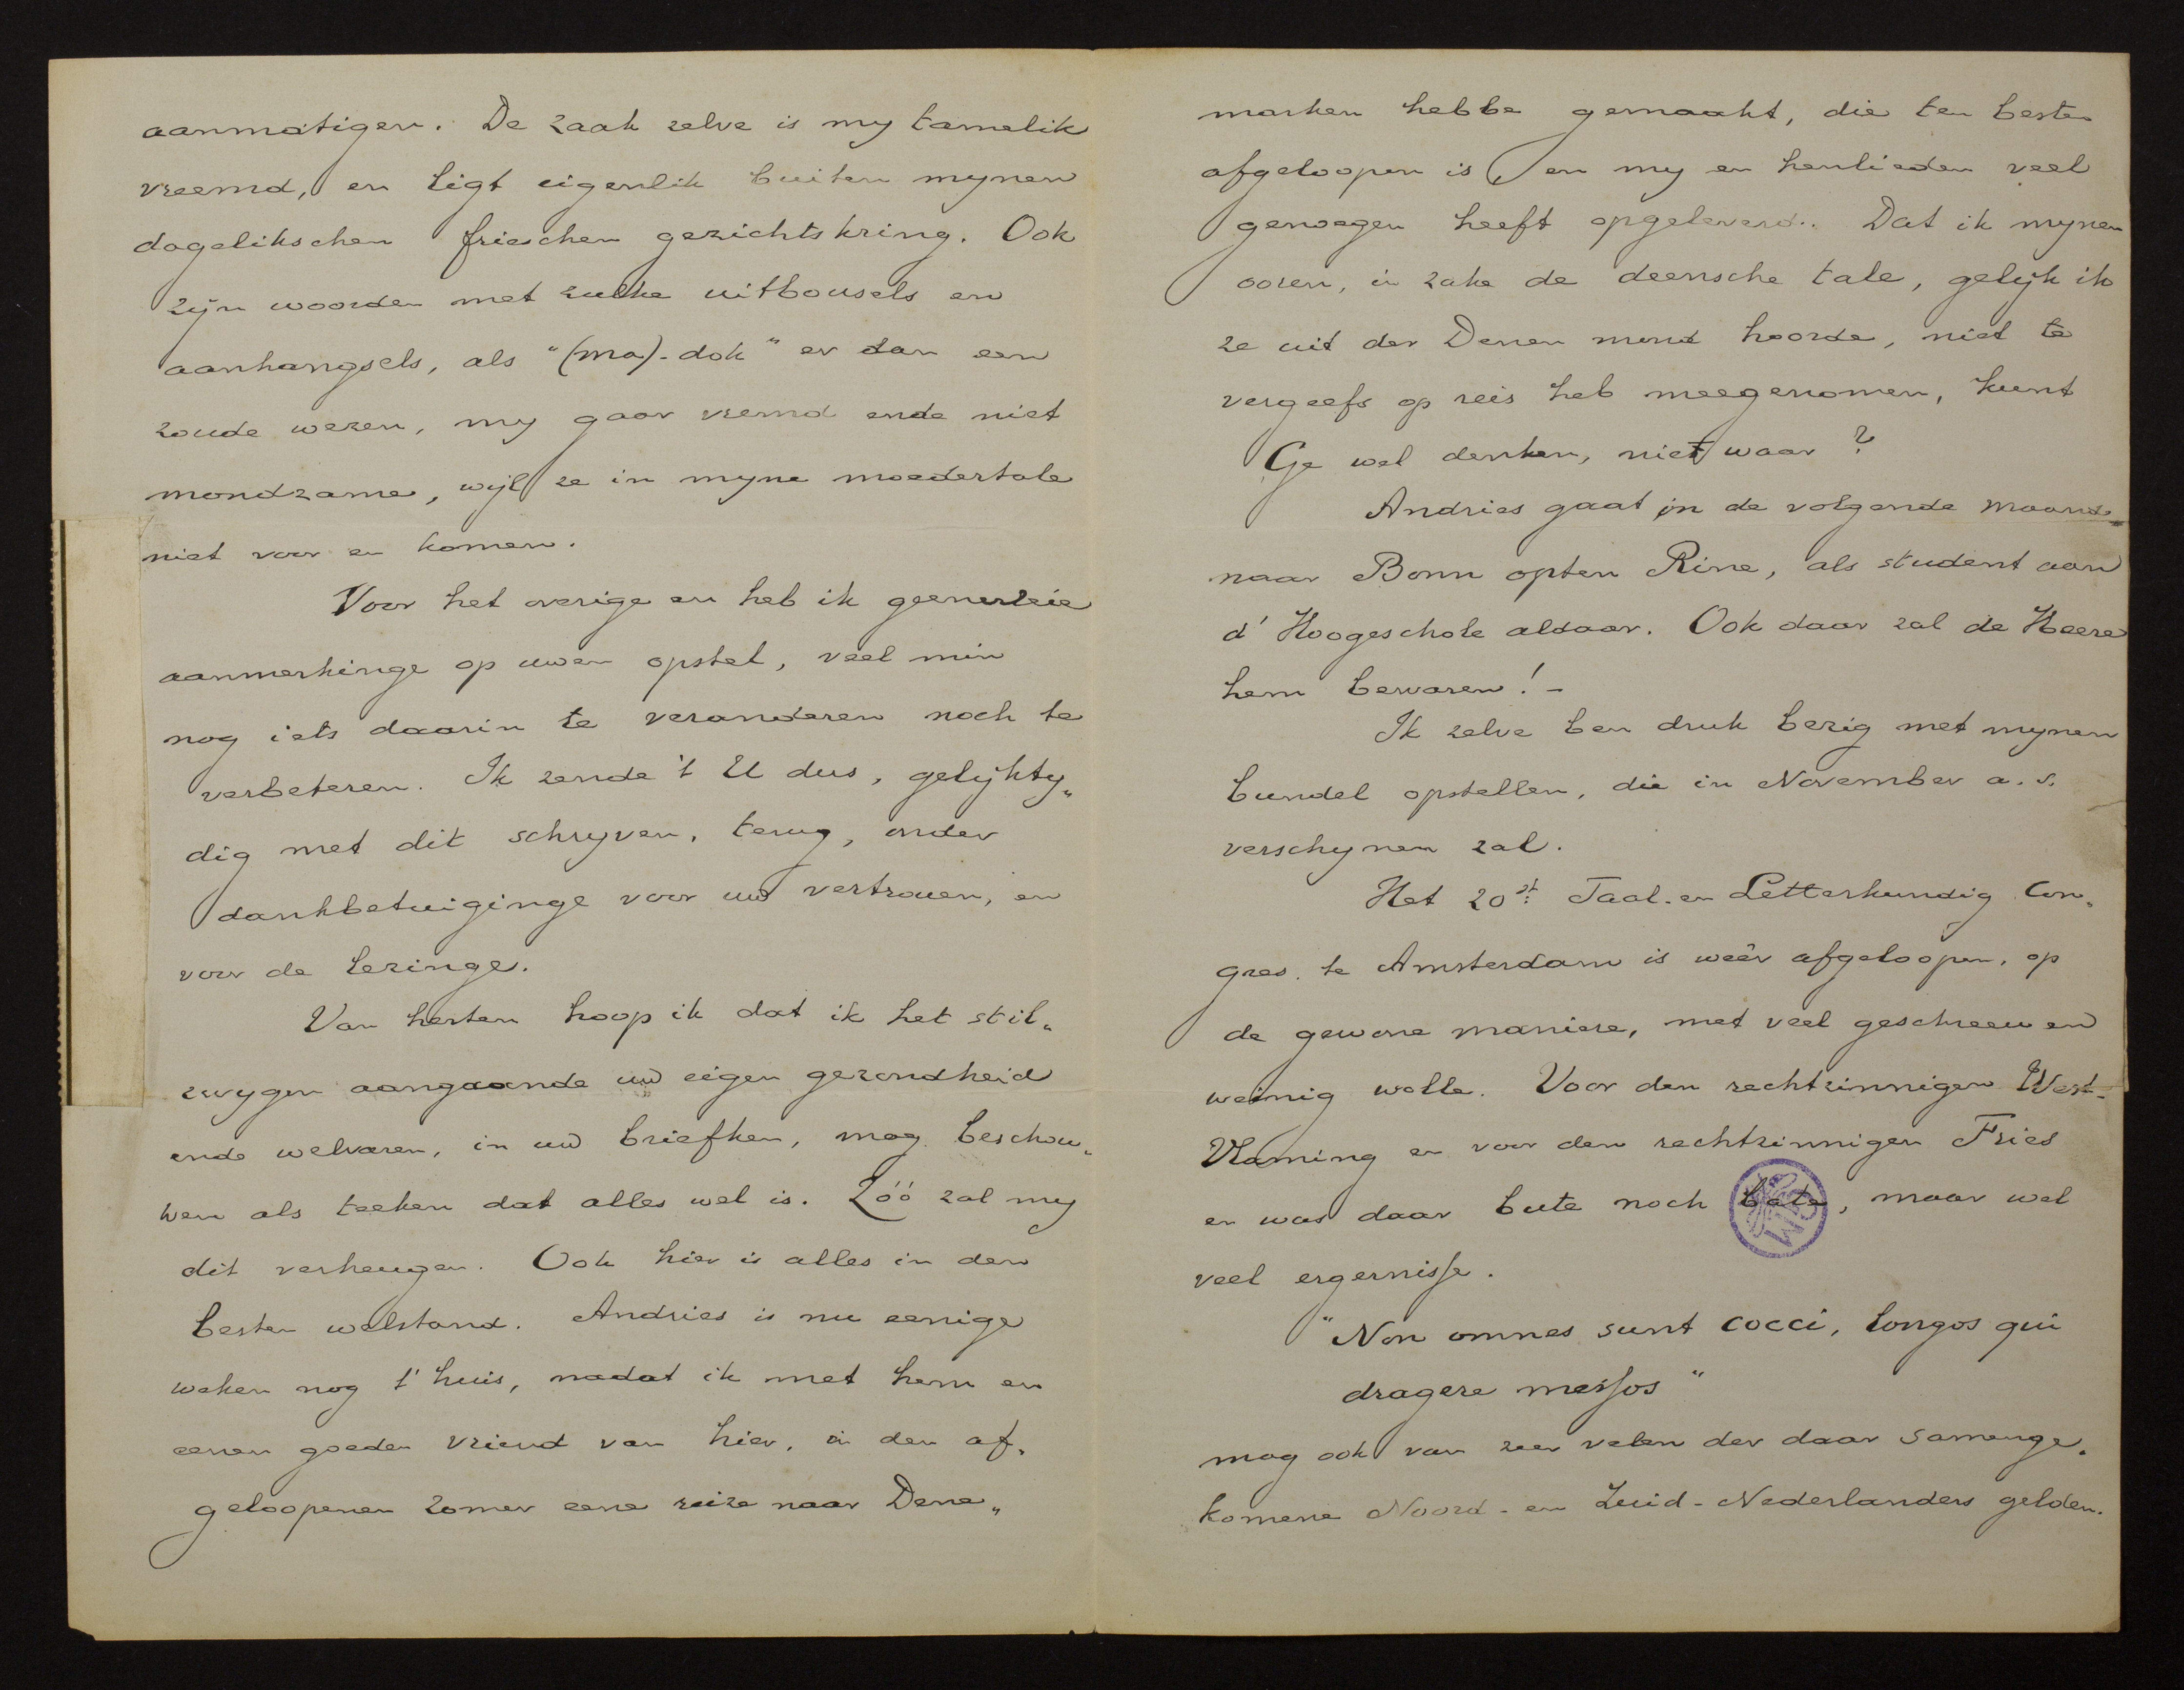 aanmatigen. De zaak zelve is my tamelik
vreemd, en ligt eigenlik buiten mynen
dagelikschen frieschen gezichtskring. Ook
zijn woorden met zulke uitbousels en
aanhangsels, als "(ma)-dok" er dan een
zoude wezen, my gaar vremd ende niet
mondzame, wijl ze in myne moedertale
niet voor en komen.
Voor het overige en heb ik geenerleie
aanmerkinge op uwen opstel, veel min
nog iets daarin te veranderen noch te
verbeteren. Ik zende 't U dus, gelijkty„
dig met dit schryven, terug, onder
dankbetuiginge voor uw vertrouen, en
voor de lezinge.
Van herten hoop ik dat ik het stil„
zwygen aangaande uw eigen gezondheid
ende welvaren, in uw briefken, mag beschou„
wen als teeken dat alles wel is. Zóó zal my
dit verheugen. Ook hier is alles in den
besten welstand. Andries is nu eenige
weken nog t' huis, nadat ik met hem en
eenen goeden vriend van hier, in den af„
geloopenen zomer eene reize naar Dene„
marken hebbe gemaakt, die ten besten
afgeloopen is, en my en henlieden veel
genoegen heeft opgeleverd. Dat ik mynen
ooren, in zake de deensche tale, gelijk ik
ze uit der Denen mond hoorde, niet te
vergeefs op reis heb meegenomen, kunt
Ge wel denken, niet waar?
Andries gaat in de volgende maand
naar Bonn opten Rine, als student aan
d' Hoogeschole aldaar. Ook daar zal de Heere
hem bewaren! -
Ik zelve ben druk bezig met mynen
bundel opstellen, die in November a. s.
verschynen zal.
Het 20st Taal- en Letterkundig Con„
gres te Amsterdam is weêr afgeloopen, op
de gewone maniere, met veel geschreeuw en
weinig wolle. Voor den rechtzinnigen West-
Vlaming en voor den rechtzinnigen Fries
en was daar bute noch bate, maar wel
veel ergernisse.
"Non omnes sunt cocci, longos qui
dragere messos"
mag ook van zeer velen der daar samenge„
komene Noord- en Zuid-Nederlanders gelden.